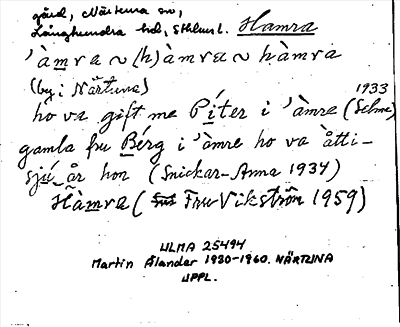 gård, Närtuna sn,
Långhundra hd, Sthlms l. Hamra
'àmra ~ (h)àmra ~ hàmra
(by i Närtuna)
ho va gift me Píter i 'àmre (Selma 1933)
gamla fru Bérg i 'àmre ho va àtti-
sjú år hon (Snickar-Anna 1934)
Hàmra (Fru Vikström 1959)
ULMA 25494
Martin Ålander 1930-1960. NÄRTUNA
UPPL.